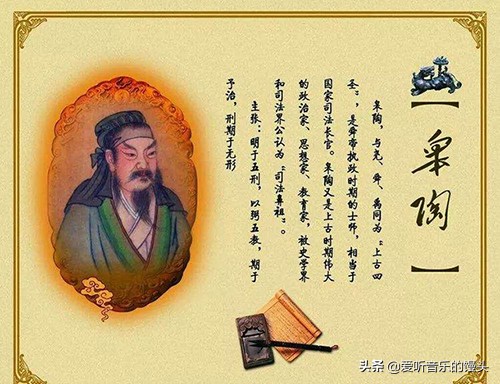 【皋陶】
皋陶，与尧、舜、禹同为“上古四
圣”，是舜帝执政时期的士师，相当于
国家司法长官。皋陶又是上古时期伟大
的政治家、思想家、教育家，被史学界
和司法界公认为“司法鼻祖”。
主张：明于五刑，以弼五教，期于
予治，刑期于无形
头条 @爱听音乐的馒头